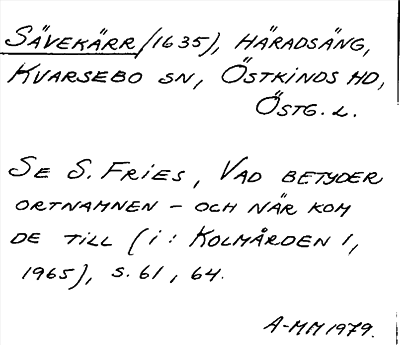 SÄVEKÄRR (1635), HÄRADSÄNG,
KVARSEBO SN, ÖSTKINDS HD,
ÖSTG. L.
SE S. FRIES, VAD BETYDER
ORTNAMNEN - OCH NÄR KOM
DE TILL (I: KOLMÅRDEN 1,
1965), S. 61, 64.
A-MM 1979.